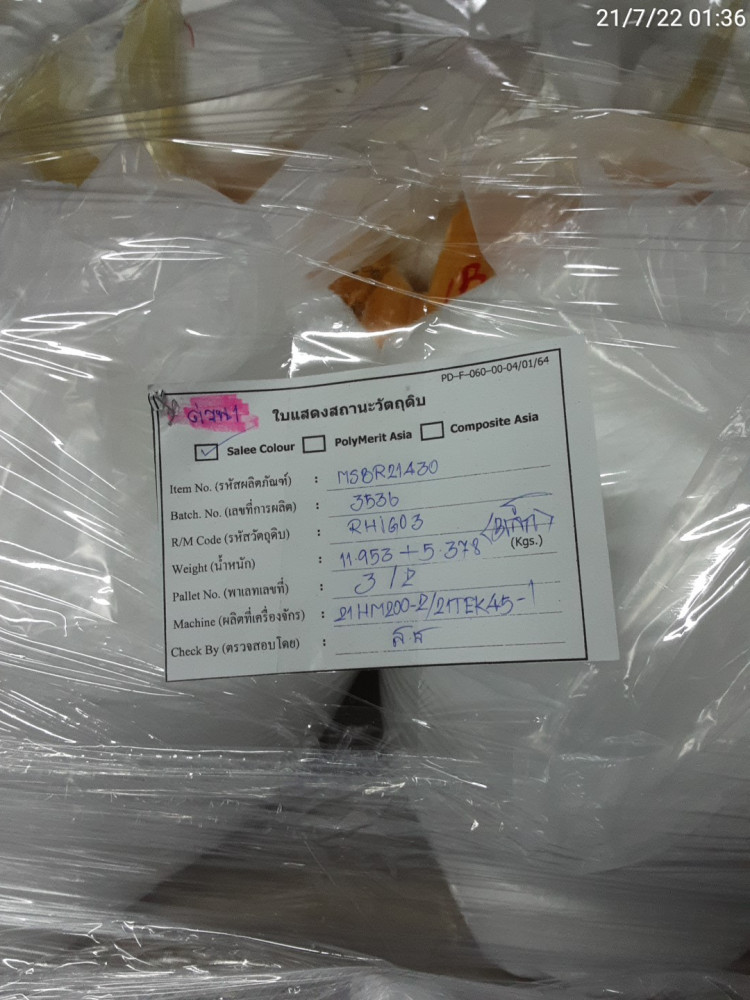 21/7/22 01:36
PD-F-060-00-04/01/64
ด่วน1
ใบแสดงสถานะวัตถุดิบ
Salee Colour PolyMerit Asia Composite Asia
Item No. (รหัสผลิตภัณฑ์) : MSBR21430
Batch. No. (เลขที่การผลิต) : 3536
R/M Code (รหัสวัตถุดิบ) : RH1G03
Weight (น้ำหนัก) : 11.953 + 5.378 (Kgs.)
Pallet No. (พาเลทเลขที่) : 3 / 2
Machine (ผลิตที่เครื่องจักร) : 21HM200-2/21TEK45-1
Check By (ตรวจสอบโดย) :